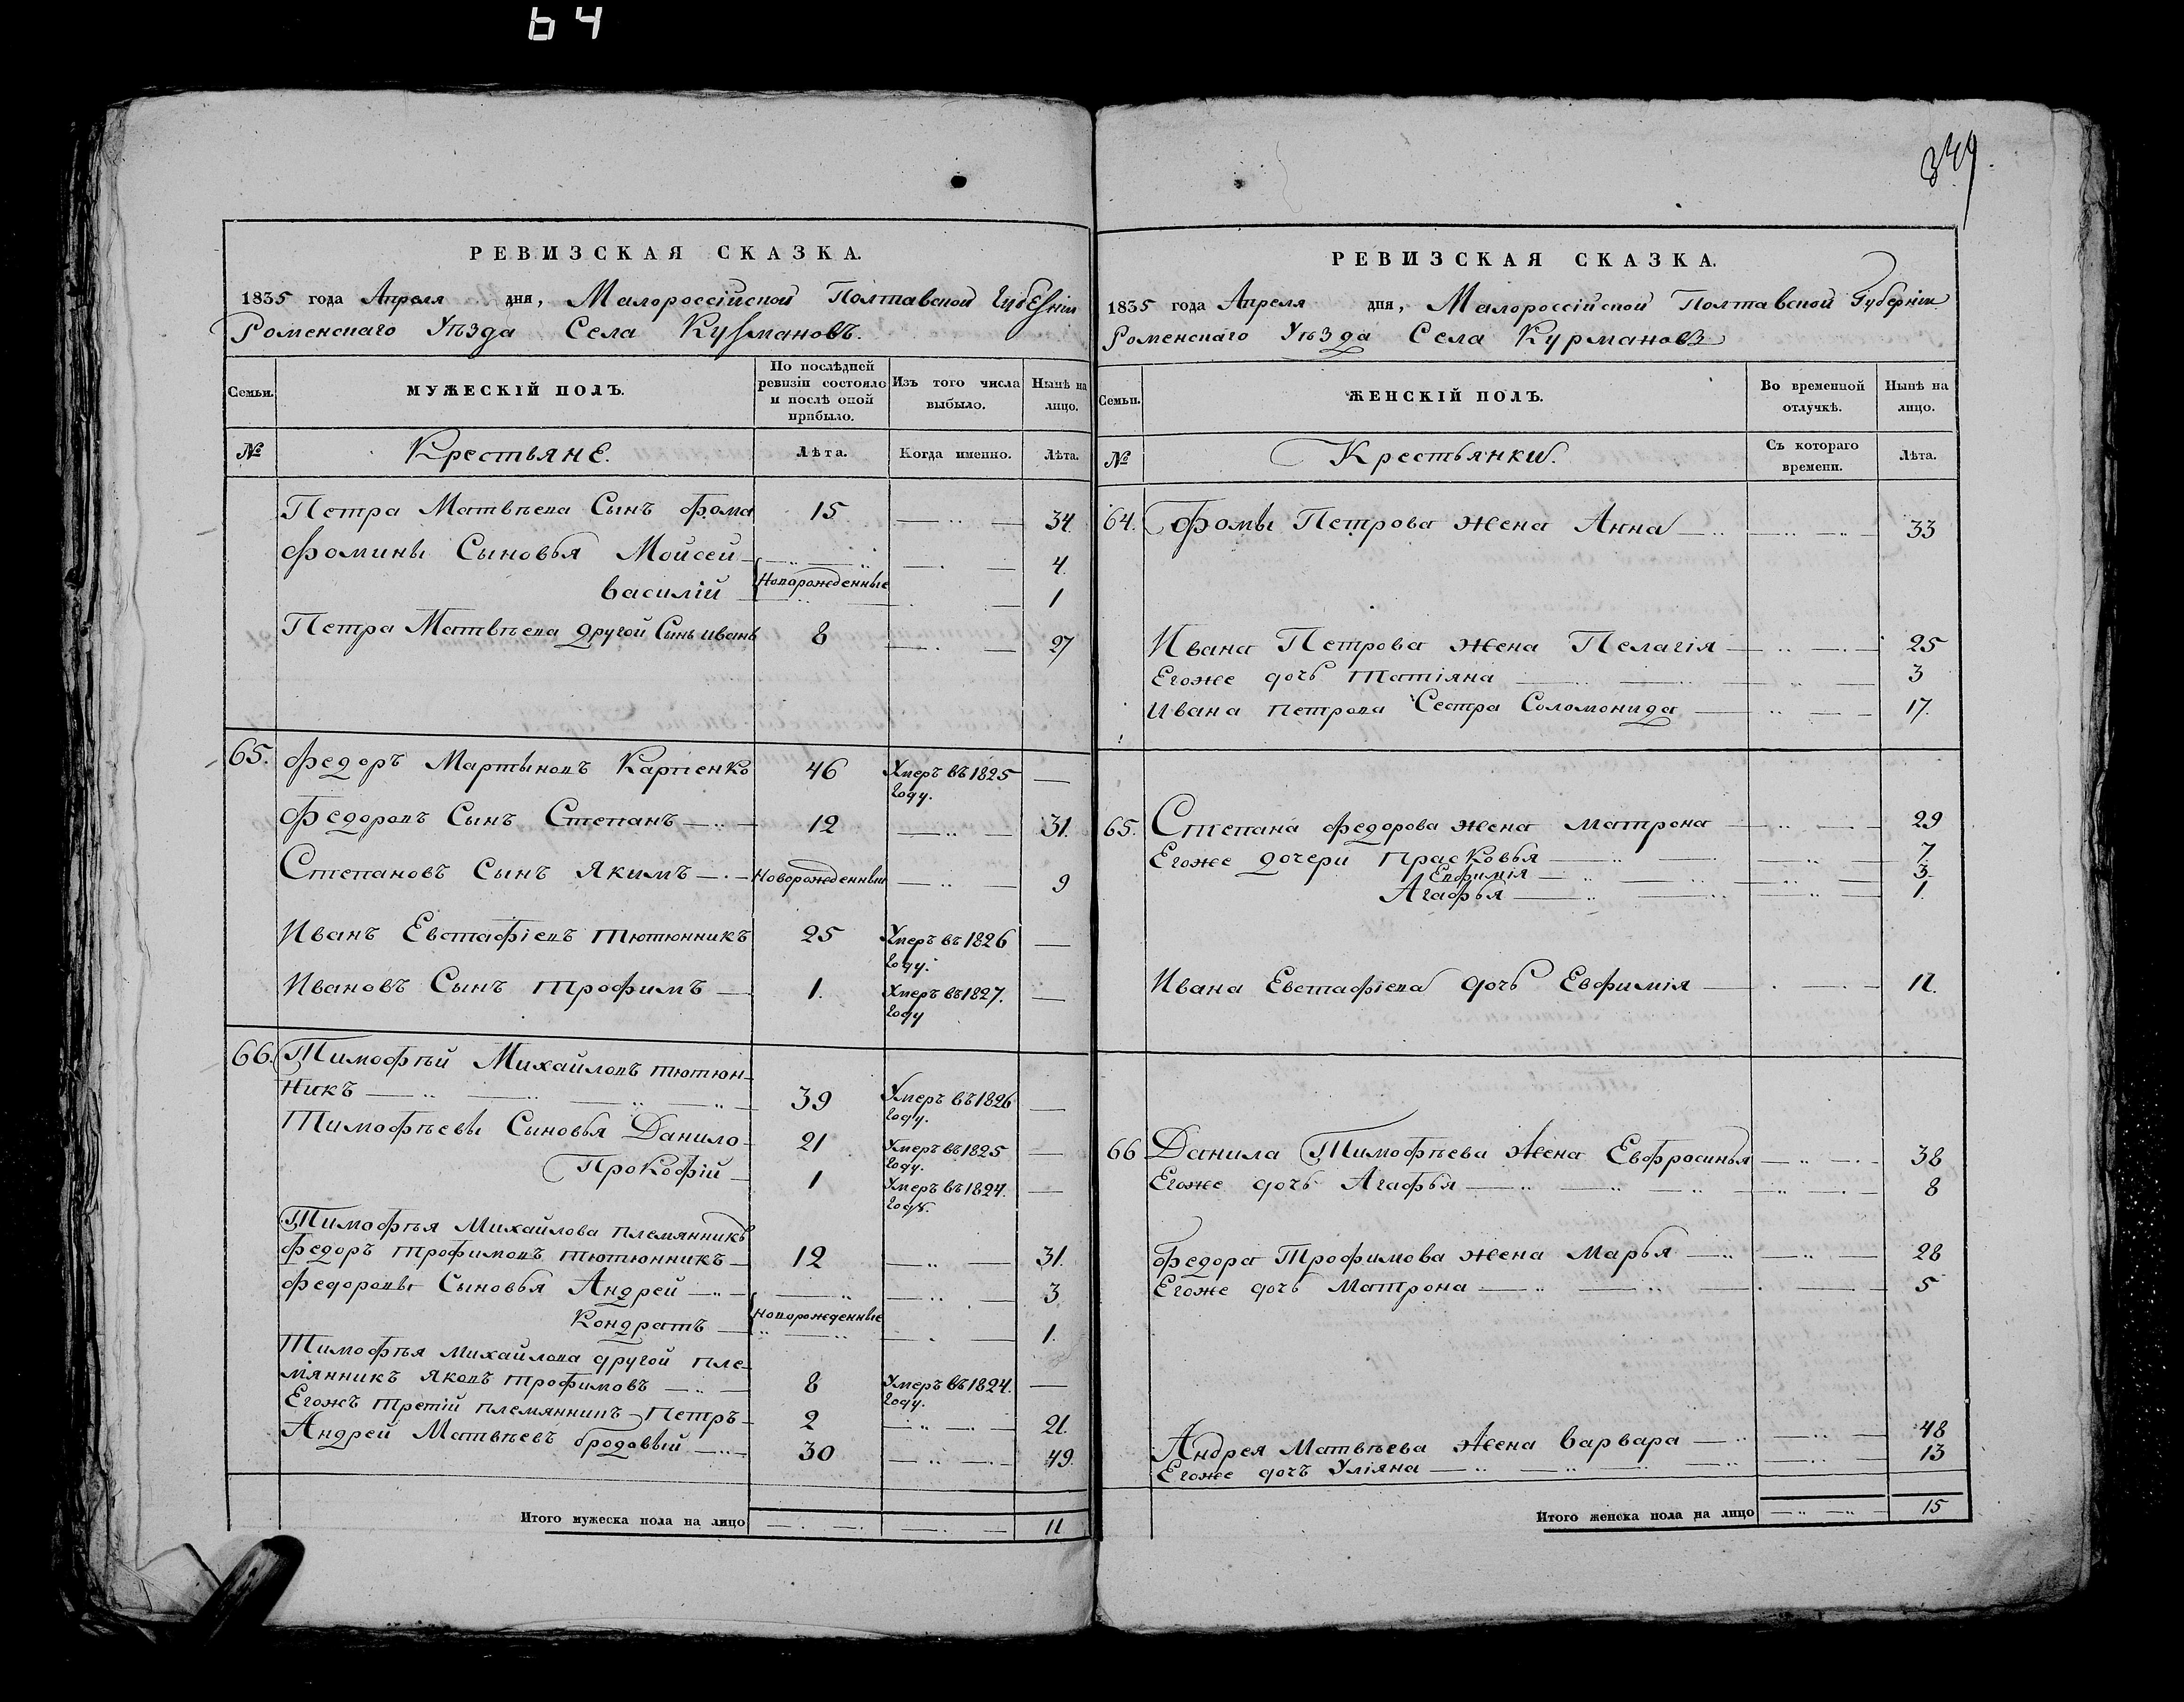 64
349.
РЕВИЗСКАЯ СКАЗКА.
1835 года Апреля дня, Малороссійской Полтавской Губерніи
Роменскаго Уѣзда Села Курмановъ.
Семьи. МУЖЕСКІЙ ПОЛЪ. По послѣдней ревизіи состояло и послѣ оной прибыло. Изъ того числа выбыло. Нынѣ на лицо.
№ Крестьяне. Лѣта. Когда именно. Лѣта.
Петра Матвѣева Сынъ Фома 15 34
Фомины Сыновья Мойсей 4.
Василій Новорожденные 1
Петра Матвѣева другой Сынъ Иванъ 8 27
65. Федоръ Мартыновъ Карпенко 46 Умеръ въ 1825 году.
Федоровъ Сынъ Степанъ 12 31.
Степановъ Сынъ Якимъ Новорожденный 9
Иванъ Евстафіевъ Тютюнникъ 25 Умеръ въ 1826 году.
Ивановъ Сынъ Трофимъ 1. Умеръ въ 1827. году
66. Тимофѣй Михайловъ Тютюн-
никъ 39 Умеръ въ 1826 году.
Тимофѣевы Сыновья Данило 21 Умеръ въ 1825 году.
Прокофій 1 Умеръ въ 1824. году.
Тимофѣя Михайлова племянникъ
Федоръ Трофимовъ Тютюнникъ 12 31.
Федоровы Сыновья Андрей 3
Кондратъ Новорожденные 1.
Тимофѣя Михайлова другой пле-
мянникъ Яковъ Трофимовъ 8 Умеръ въ 1824. году.
Егожъ третій племянникъ Петръ 2 21.
Андрей Матвѣевъ Бродовый 30 49.
Итого мужеска пола на лицо 11
РЕВИЗСКАЯ СКАЗКА.
1835 года Апреля дня, Малороссійской Полтавской Губерніи
Роменскаго Уѣзда Села Курмановъ
Семьи. ЖЕНСКІЙ ПОЛЪ. Во временной отлучкѣ. Нынѣ на лицо.
№ Крестьянки. Съ котораго времени. Лѣта.
64. Фомы Петрова жена Анна 33
Ивана Петрова жена Пелагія 25
Егоже дочь Татіяна 3
Ивана Петрова Сестра Соломонида 17.
65. Степана Федорова жена Матрона 29
Егоже дочери Прасковья 7.
Евфимія 3.
Агафья 1.
Ивана Евстафіева дочь Евфимія 11.
66 Данила Тимофѣева жена Евфросинья 38
Егоже дочь Агафья 8
Федора Трофимова жена Марья 28
Егоже дочь Матрона 5
Андрея Матвѣева жена Варвара 48
Егоже дочъ Уліяна 13
Итого женска пола на лицо 15